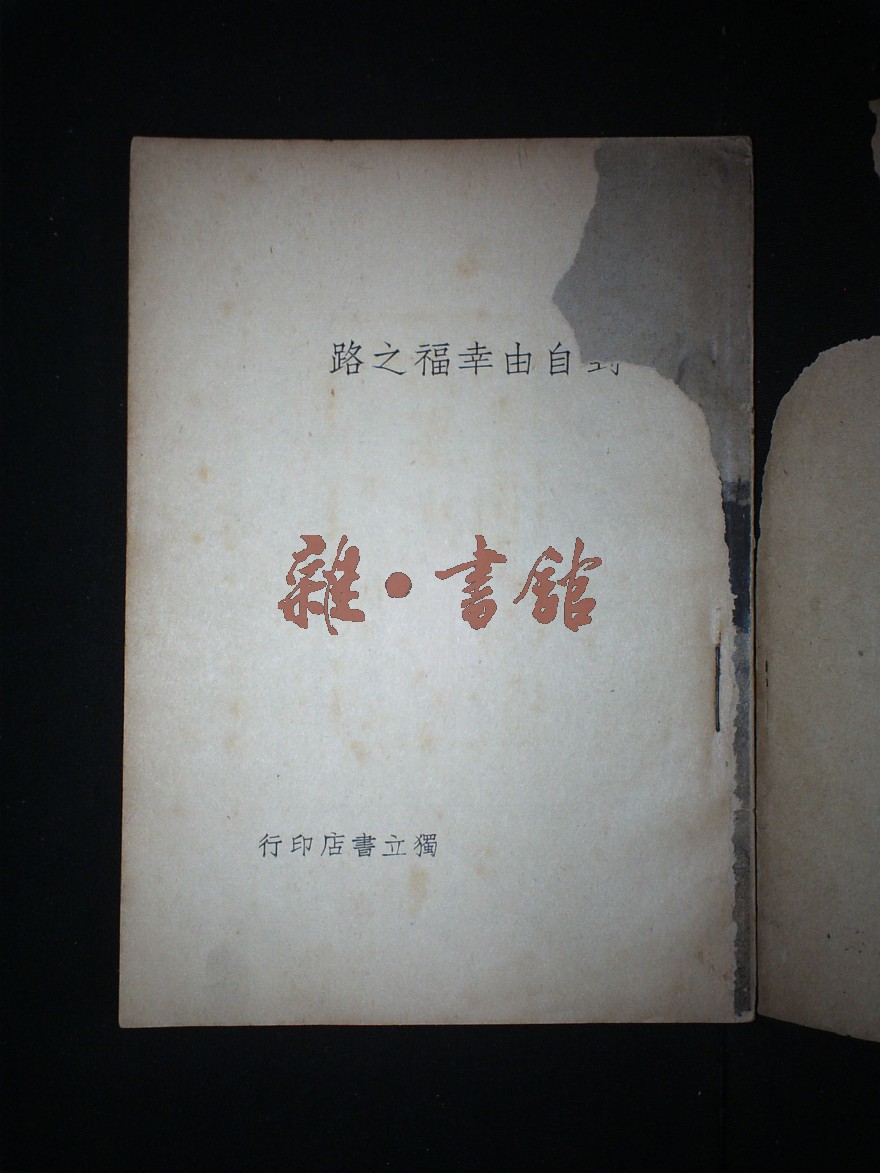 到自由幸福之路
雜•書館
獨立書店印行